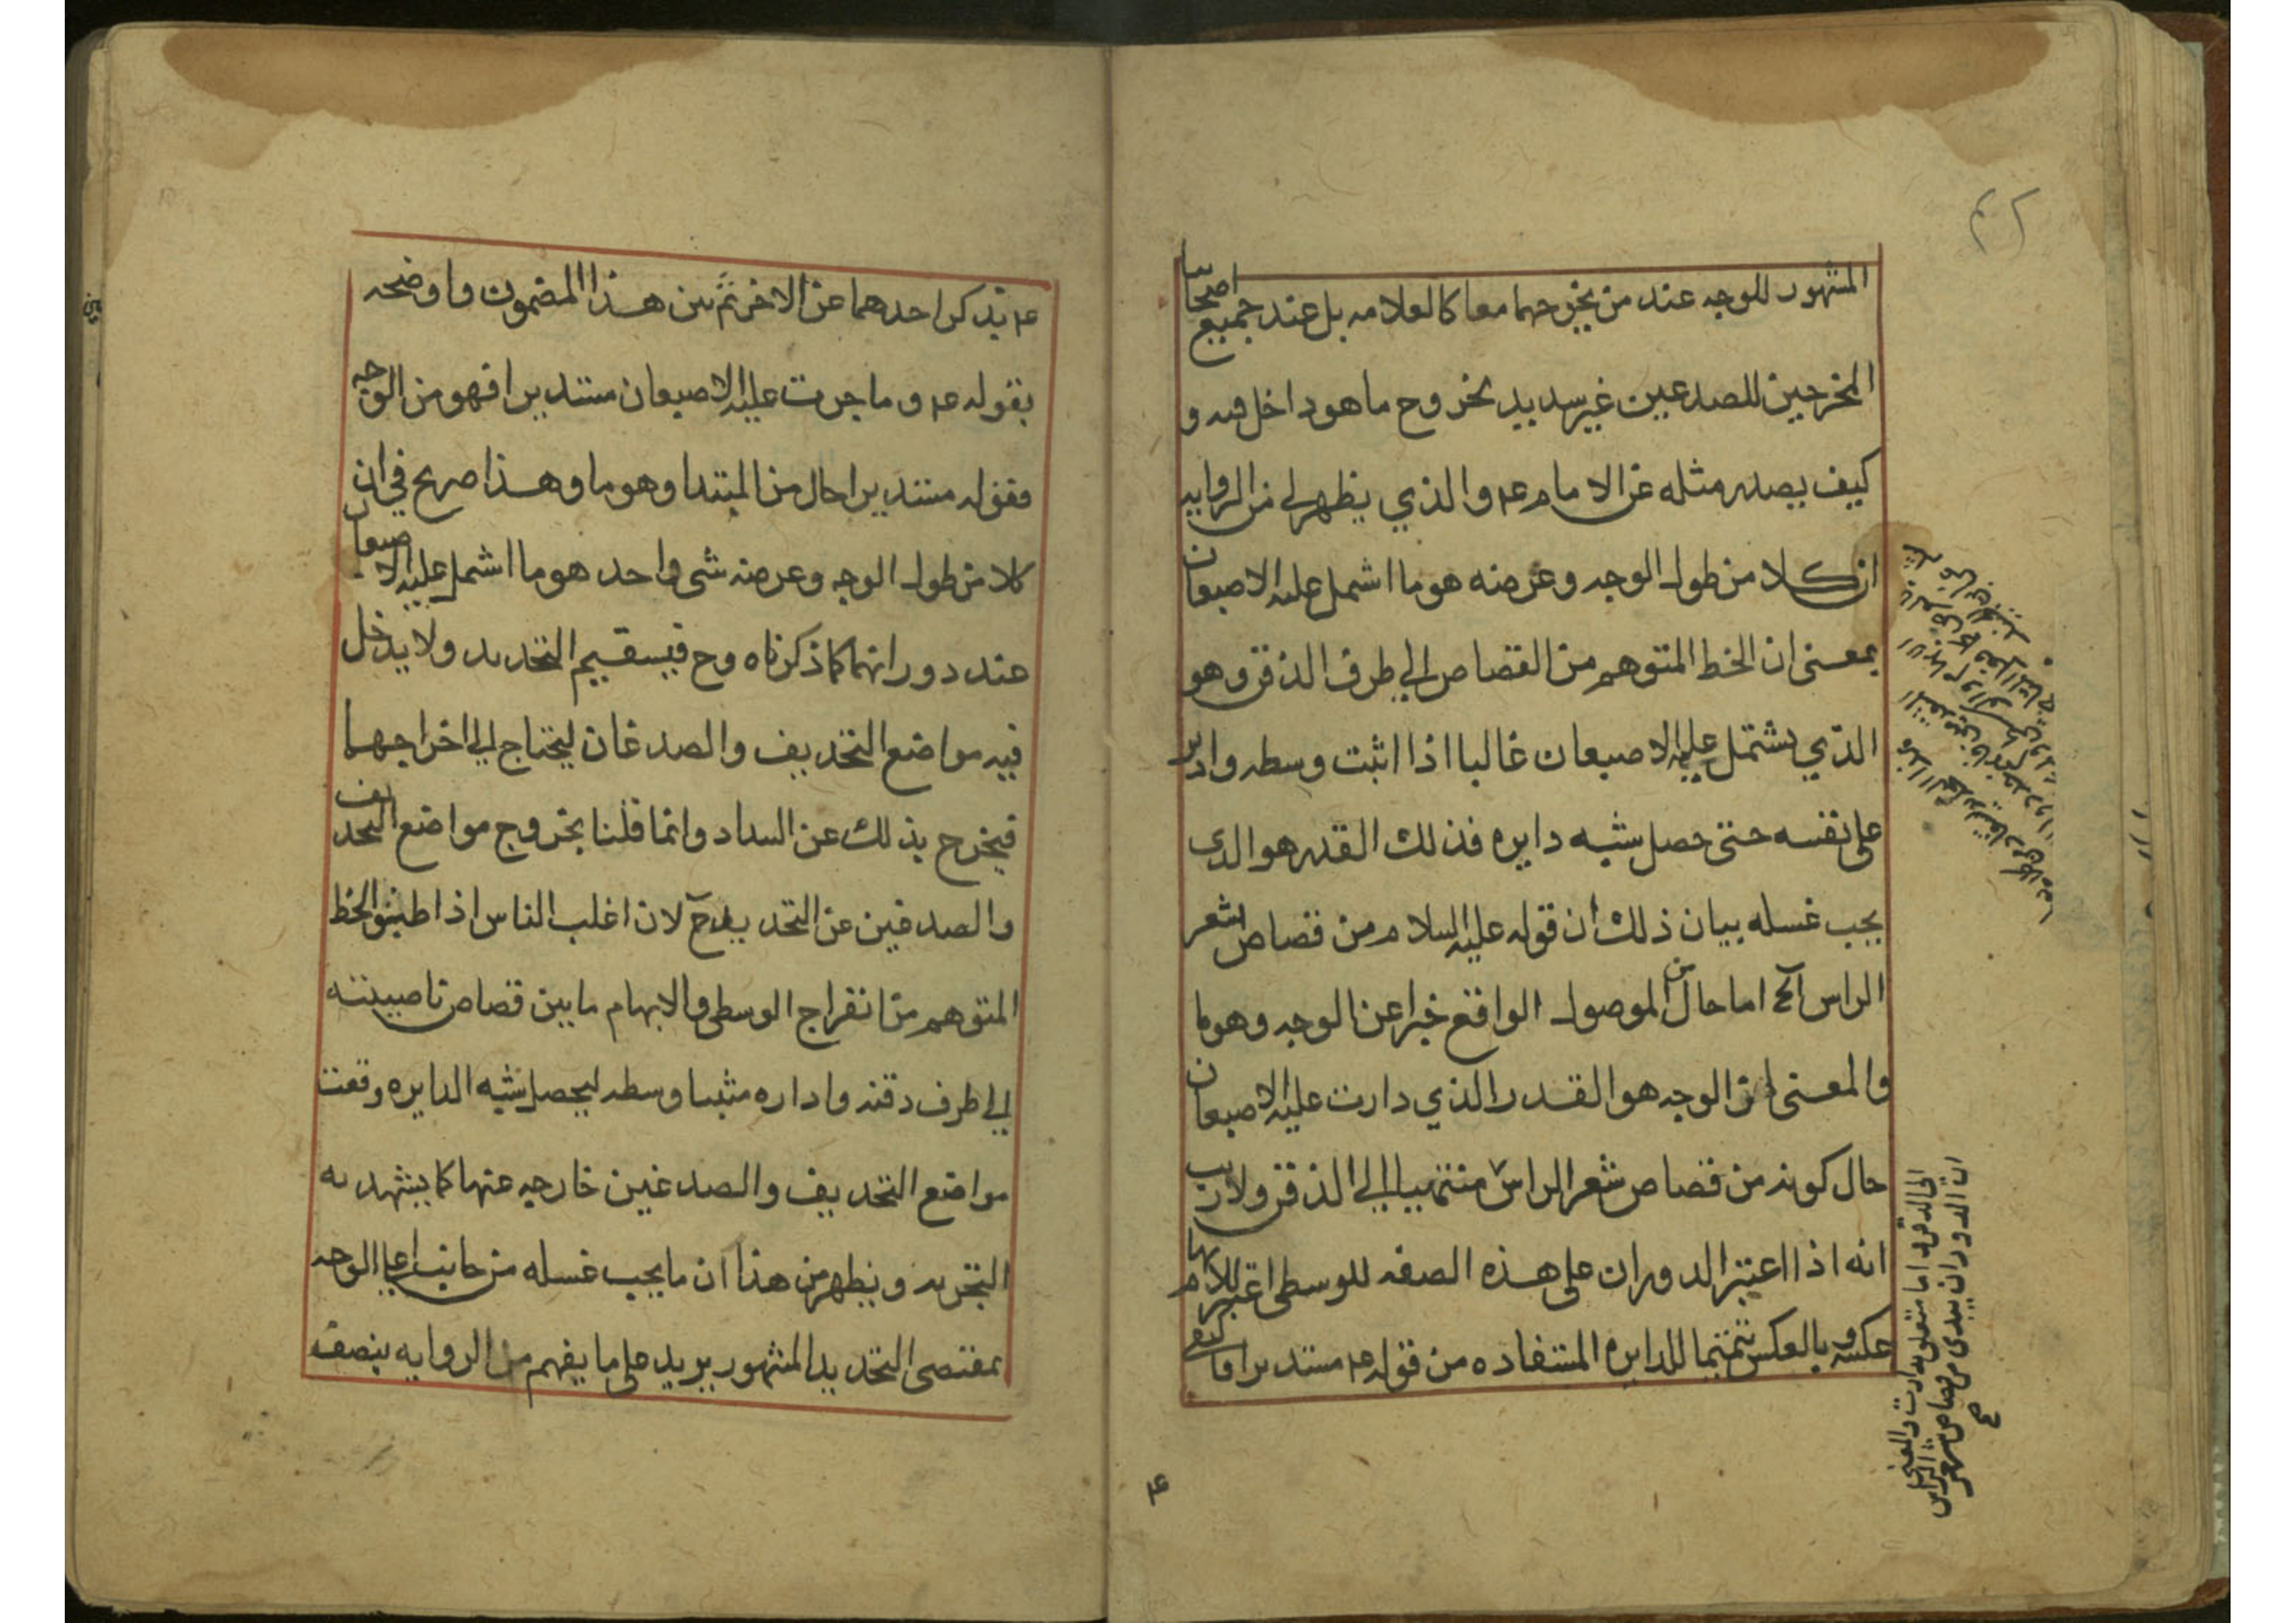 المشهور للوجه عند من يخرجهما معا كالعلامه بل عند جميع اصحابنا
المخرجين للصدعين غير سديد بخروج ما هو داخل فيه و
كيف يصدر مثله عن الامام ع والذي يظهر لي من الروايه
ان كلا من طول الوجه وعرضه هو ما اشمل عليه الاصبعان
بمعنى ان الخط المتوهم من القصاص الي طرف الذقن وهو
الذي يشتمل عليه الاصبعان غالبا اذا اثبت وسطه وادير
على نفسه حتى حصل شبه دايره فذلك القدر هو الذى
يجب غسله بيان ذلك ان قوله عليه السلام من قصاص شعر
الراس آلخ اما حال من الموصول الواقع خبرا عن الوجه وهو ما
والمعنى ان الوجه هو القدر الذي دارت عليه الاصبعان
حال كونه من قصاص شعر الراس منتهيا الي الذقن ولا ريب
انه اذا اعتبر الدوران على هذه الصفه للوسطى اعتبر للابهام
عكسه وبالعكس تتميما للدايره المستفاده من قوله ع مستديرا فاكتفى
الي الذقن واما متعلق بدارت والمعنى
ان الدوران يبتدى من قصاص شعر الراس
صح
ع
ع بذكر احدهما عن الاخر ثم بين هذا المضمون واوضحه
بقوله ع وما جرت عليه الاصبعان مستديرا فهو من الوجه
فقوله مستديرا حال من المبتدا وهو ما وهذا صريح في ان
كلا من طول الوجه وعرضه شى واحد هو ما اشمل عليه الاصبعان
عند دورانهما كما ذكرناه وح فيستقيم التحديد ولا يدخل
فيه مواضع التحذيف والصدغان ليحتاج الي اخراجهما
فيخرج بذلك عن السداد وانما قلنا بخروج مواضع التحذيف
والصدغين عن التحديد ح لان اغلب الناس اذا طبقوا الخط
المتوهم من انفراج الوسطى والابهام ما بين قصاص ناصيته
الي طرف دقنه واداره مثبتا وسطه ليحصل شبه الدايره وقعت
مواضع التحذيف والصدغين خارجه عنها كما يشهد به
التجربه ويظهر من هذا ان ما يجب غسله من جانب اعلى الوجه
بمقتصى التحديد المشهور يزيد على ما يفهم من الروايه بنصف